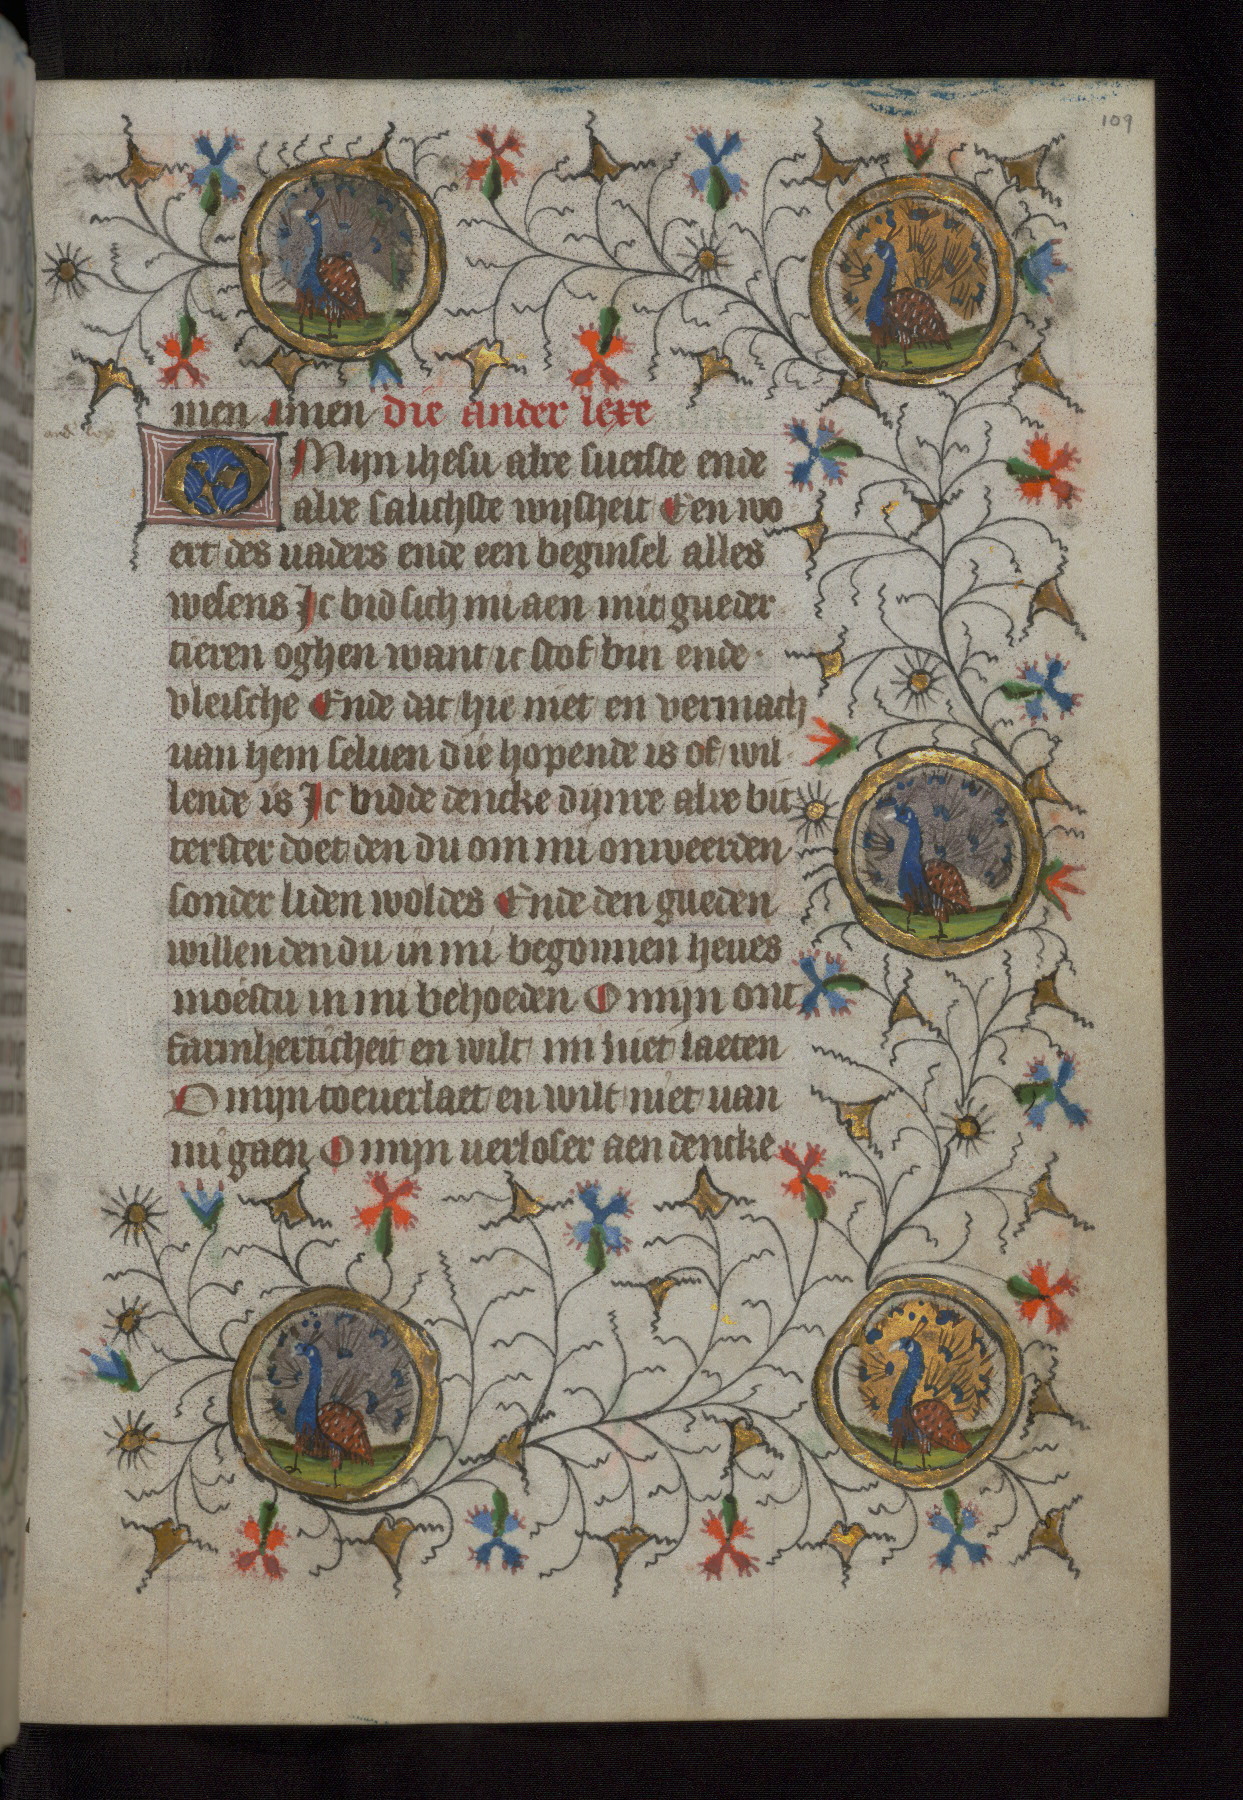 109
men amen die ander lexe
O Mijn ihesu alre suetste ende
alre salichste wijsheit Een wo
ert des uaders ende een beginsel alles
wesens Ic bid sich mi aen mit gueder
tieren oghen want ic stof bin ende
vleische Ende dat hie niet en vermach
uan hem seluen die hopende is of wil
lende is Ic bidde dencke dijnre alre bit
terster doet den du om mi onweerden
sonder liden woldes Ende den gueden
willen den du in mi begonnen heues
moestu in mi behoeden O mijn ont
farmherticheit en wilt mi niet laeten
O mijn toeuerlaet en wilt niet uan
mi gaen O mijn uerloser aen dencke